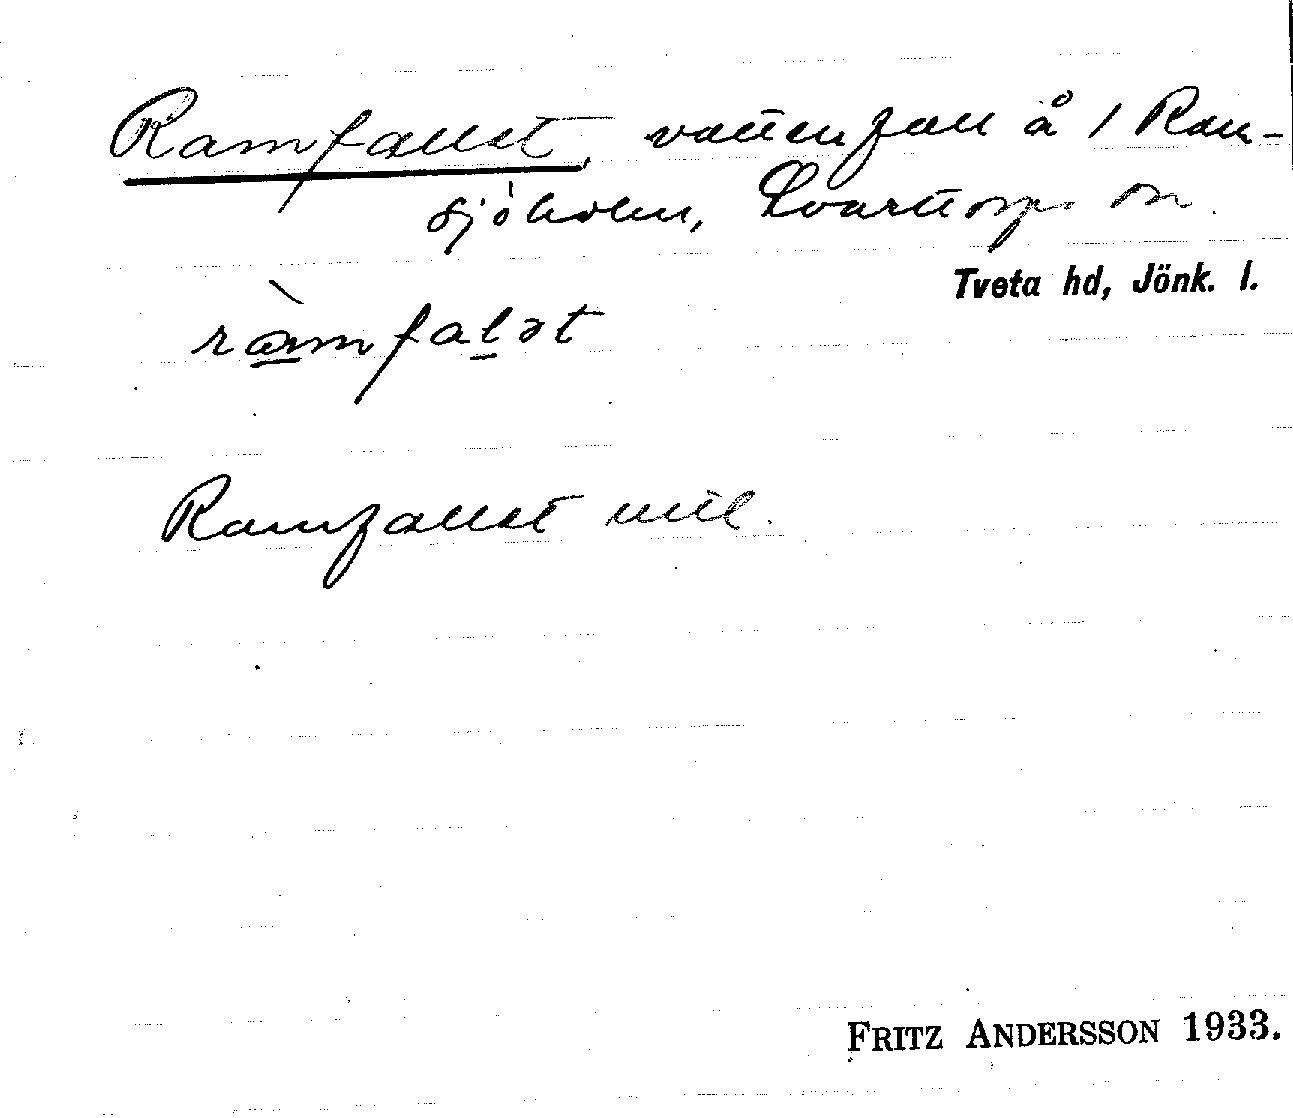 Ramfallet, vattenfall å 1 Ram-
sjöholm, Svarttorps sn.
Tveta hd, Jönk. l.
ràmfalət
Ramfallet
FRITZ ANDERSSON 1933.